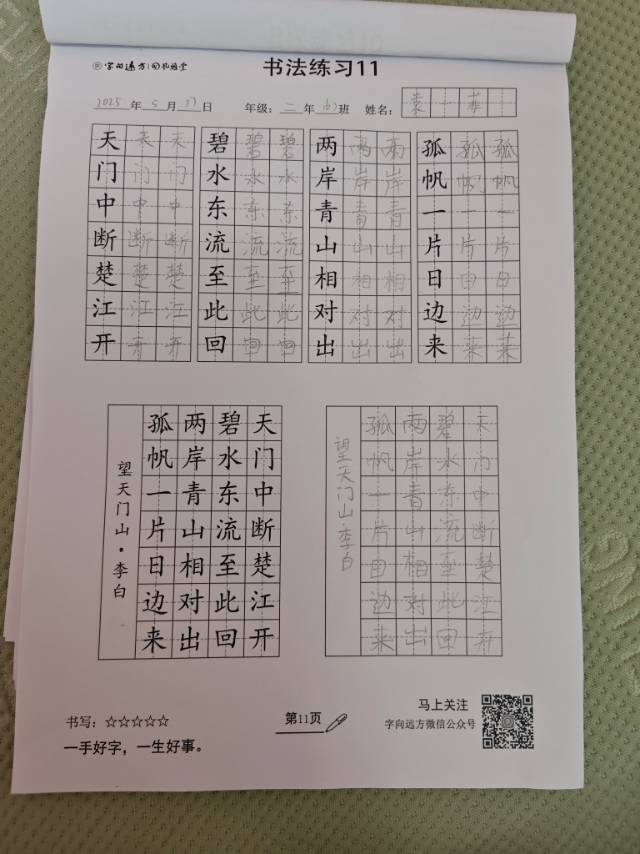 字向远方
书法练习11
2025年5月17日 年级：三年(6)班 姓名：袁一
天天天 碧碧碧 两两两 孤孤孤
门门门 水水水 岸岸岸 帆帆帆
中中中 东东东 青青青 一一一
断断断 流流流 山山山 片片片
楚楚楚 至至至 相相相 日日日
江江江 此此此 对对对 边边边
开开开 回回回 出出出 来来来
天门中断楚江开
碧水东流至此回
两岸青山相对出
孤帆一片日边来
望天门山·李白
天门中断楚江开
碧水东流至此回
两岸青山相对出
孤帆一片日边来
望天门山·李白
书写：☆☆☆☆☆
一手好字，一生好事。
第11页
马上关注
字向远方微信公众号